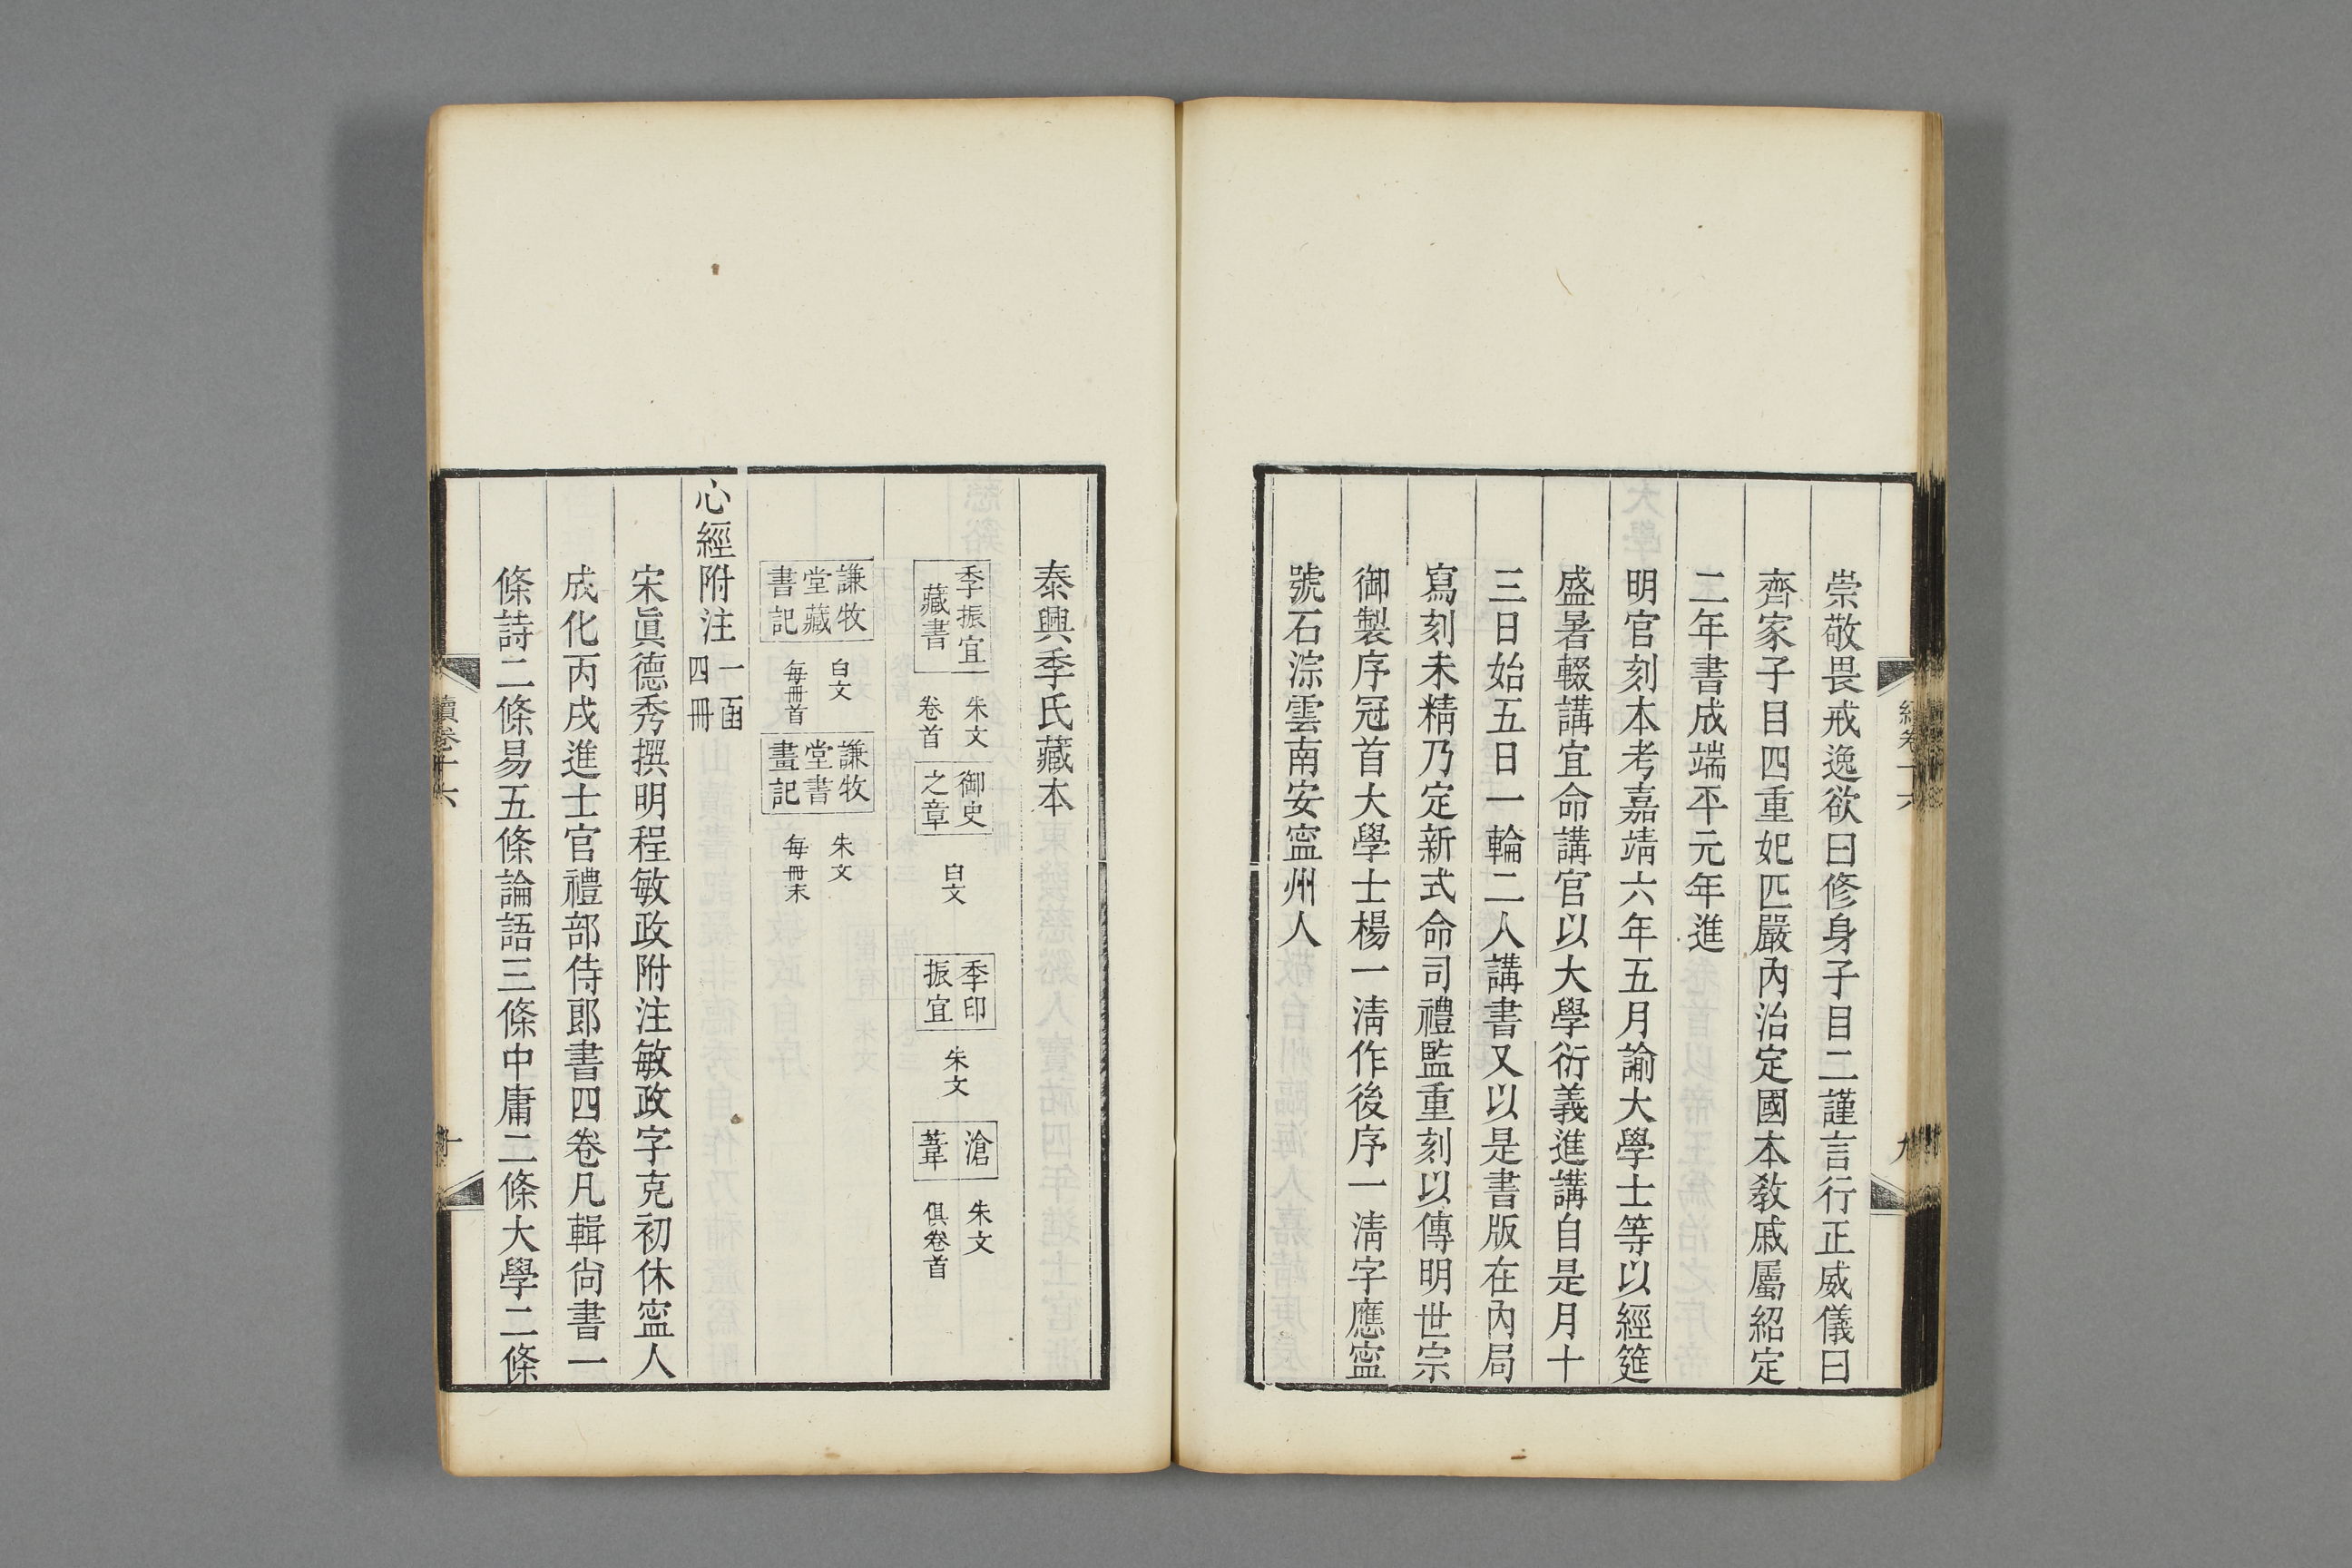 崇敬畏戒逸欲曰修身子目二謹言行正威儀曰
齊家子目四重妃匹嚴內治定國本敎戚屬紹定
二年書成端平元年進
明官刻本考嘉靖六年五月諭大學士等以經筵
盛暑輟講宜命講官以大學衍義進講自是月十
三日始五日一輪二人講書又以是書版在內局
寫刻未精乃定新式命司禮監重刻以傳明世宗
御製序冠首大學士楊一淸作後序一淸字應寍
號石淙雲南安寍州人
泰興季氏藏本
季振宜
藏書
朱文
卷首
御史
之章
白文
季印
振宜
朱文
滄
葦
朱文
俱卷首
謙牧
堂藏
書記
白文
每冊首
謙牧
堂書
畫記
朱文
每冊末
心經附注
一函
四冊
宋眞德秀撰明程敏政附注敏政字克初休寍人
成化丙戌進士官禮部侍郎書四卷凡輯尙書一
條詩二條易五條論語三條中庸二條大學二條
續卷十六
十